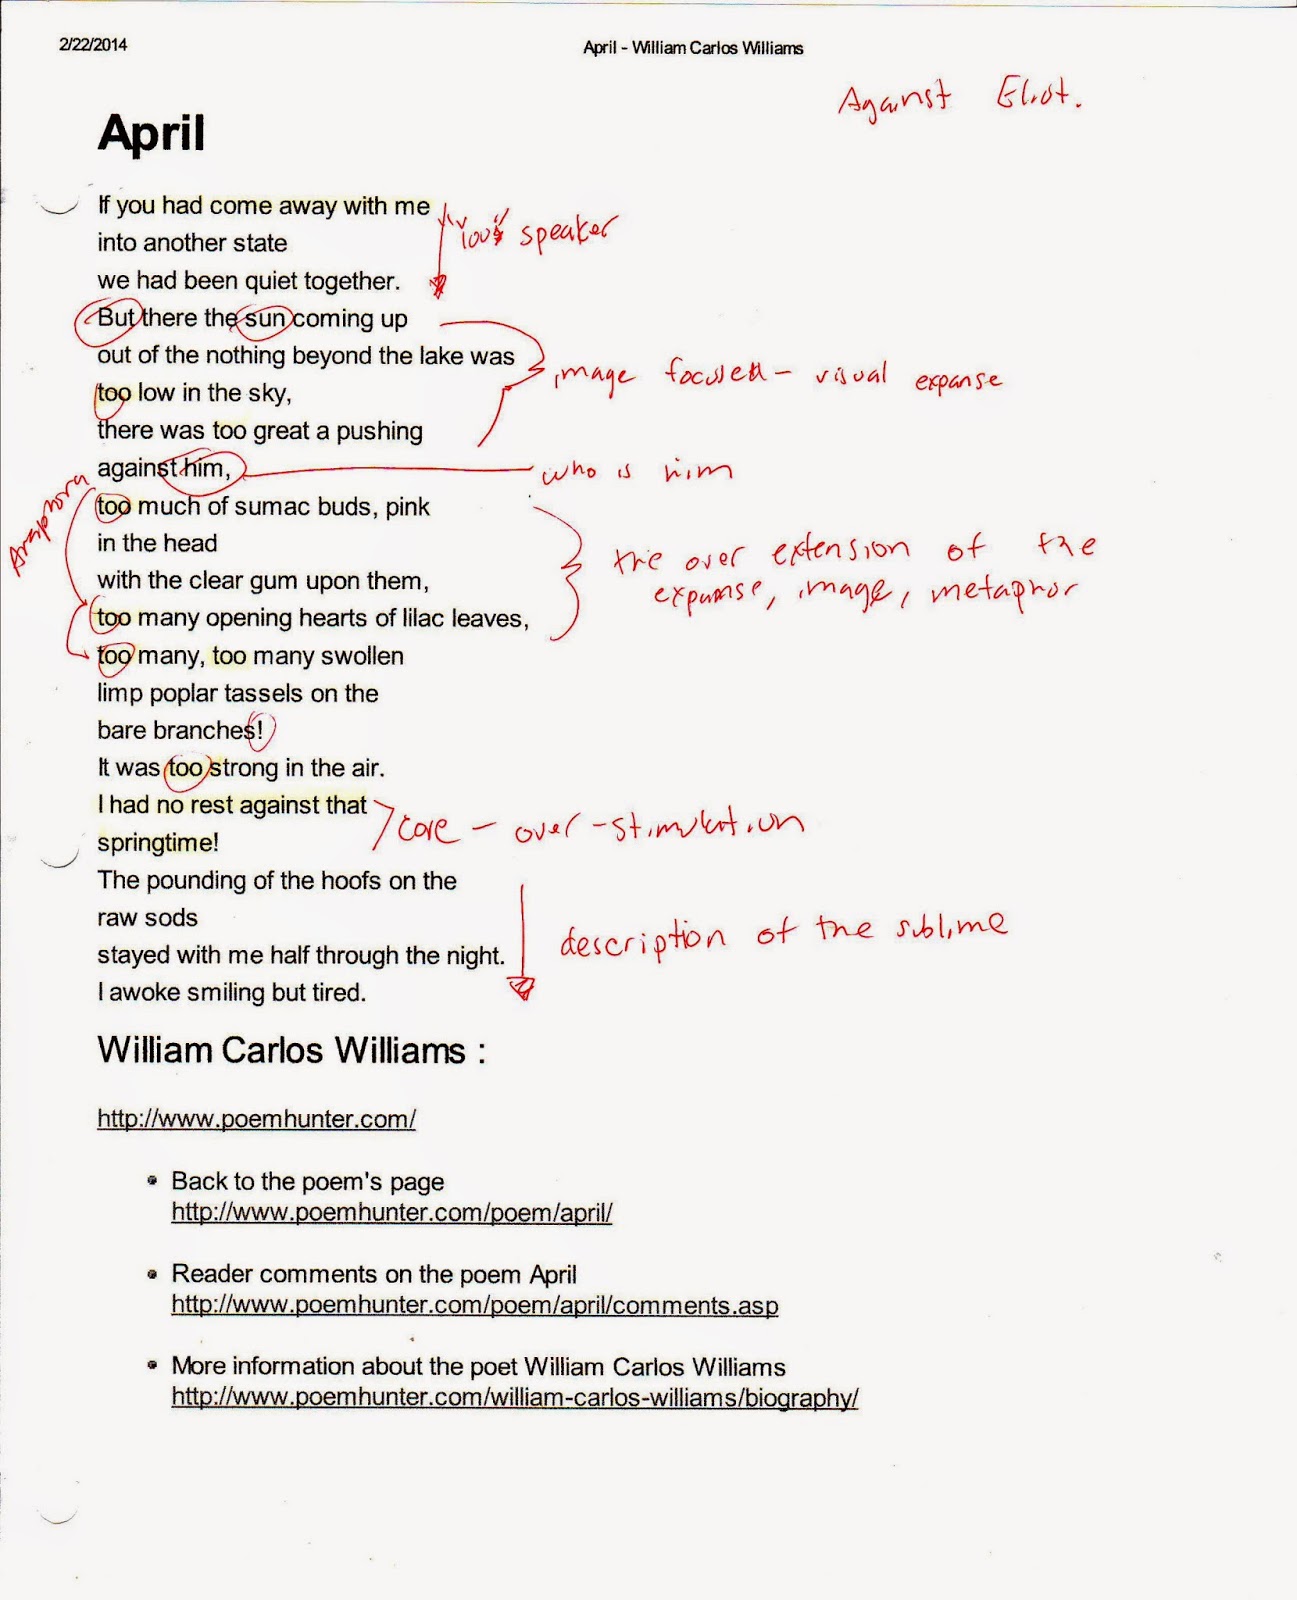 2/22/2014 April - William Carlos Williams
Against Eliot.
April
If you had come away with me
into another state
speaker
we had been quiet together.
But there the sun coming up
out of the nothing beyond the lake was
image focused - visual expanse
too low in the sky,
there was too great a pushing
against him,
who is him
Anaphora
too much of sumac buds, pink
in the head
the over extension of the
expanse, image, metaphor
with the clear gum upon them,
too many opening hearts of lilac leaves,
too many, too many swollen
limp poplar tassels on the
bare branches!
It was too strong in the air.
I had no rest against that
core - over-stimulation
springtime!
The pounding of the hoofs on the
raw sods
description of the sublime
stayed with me half through the night.
I awoke smiling but tired.
William Carlos Williams :
http://www.poemhunter.com/
• Back to the poem's page
http://www.poemhunter.com/poem/april/
• Reader comments on the poem April
http://www.poemhunter.com/poem/april/comments.asp
• More information about the poet William Carlos Williams
http://www.poemhunter.com/william-carlos-williams/biography/